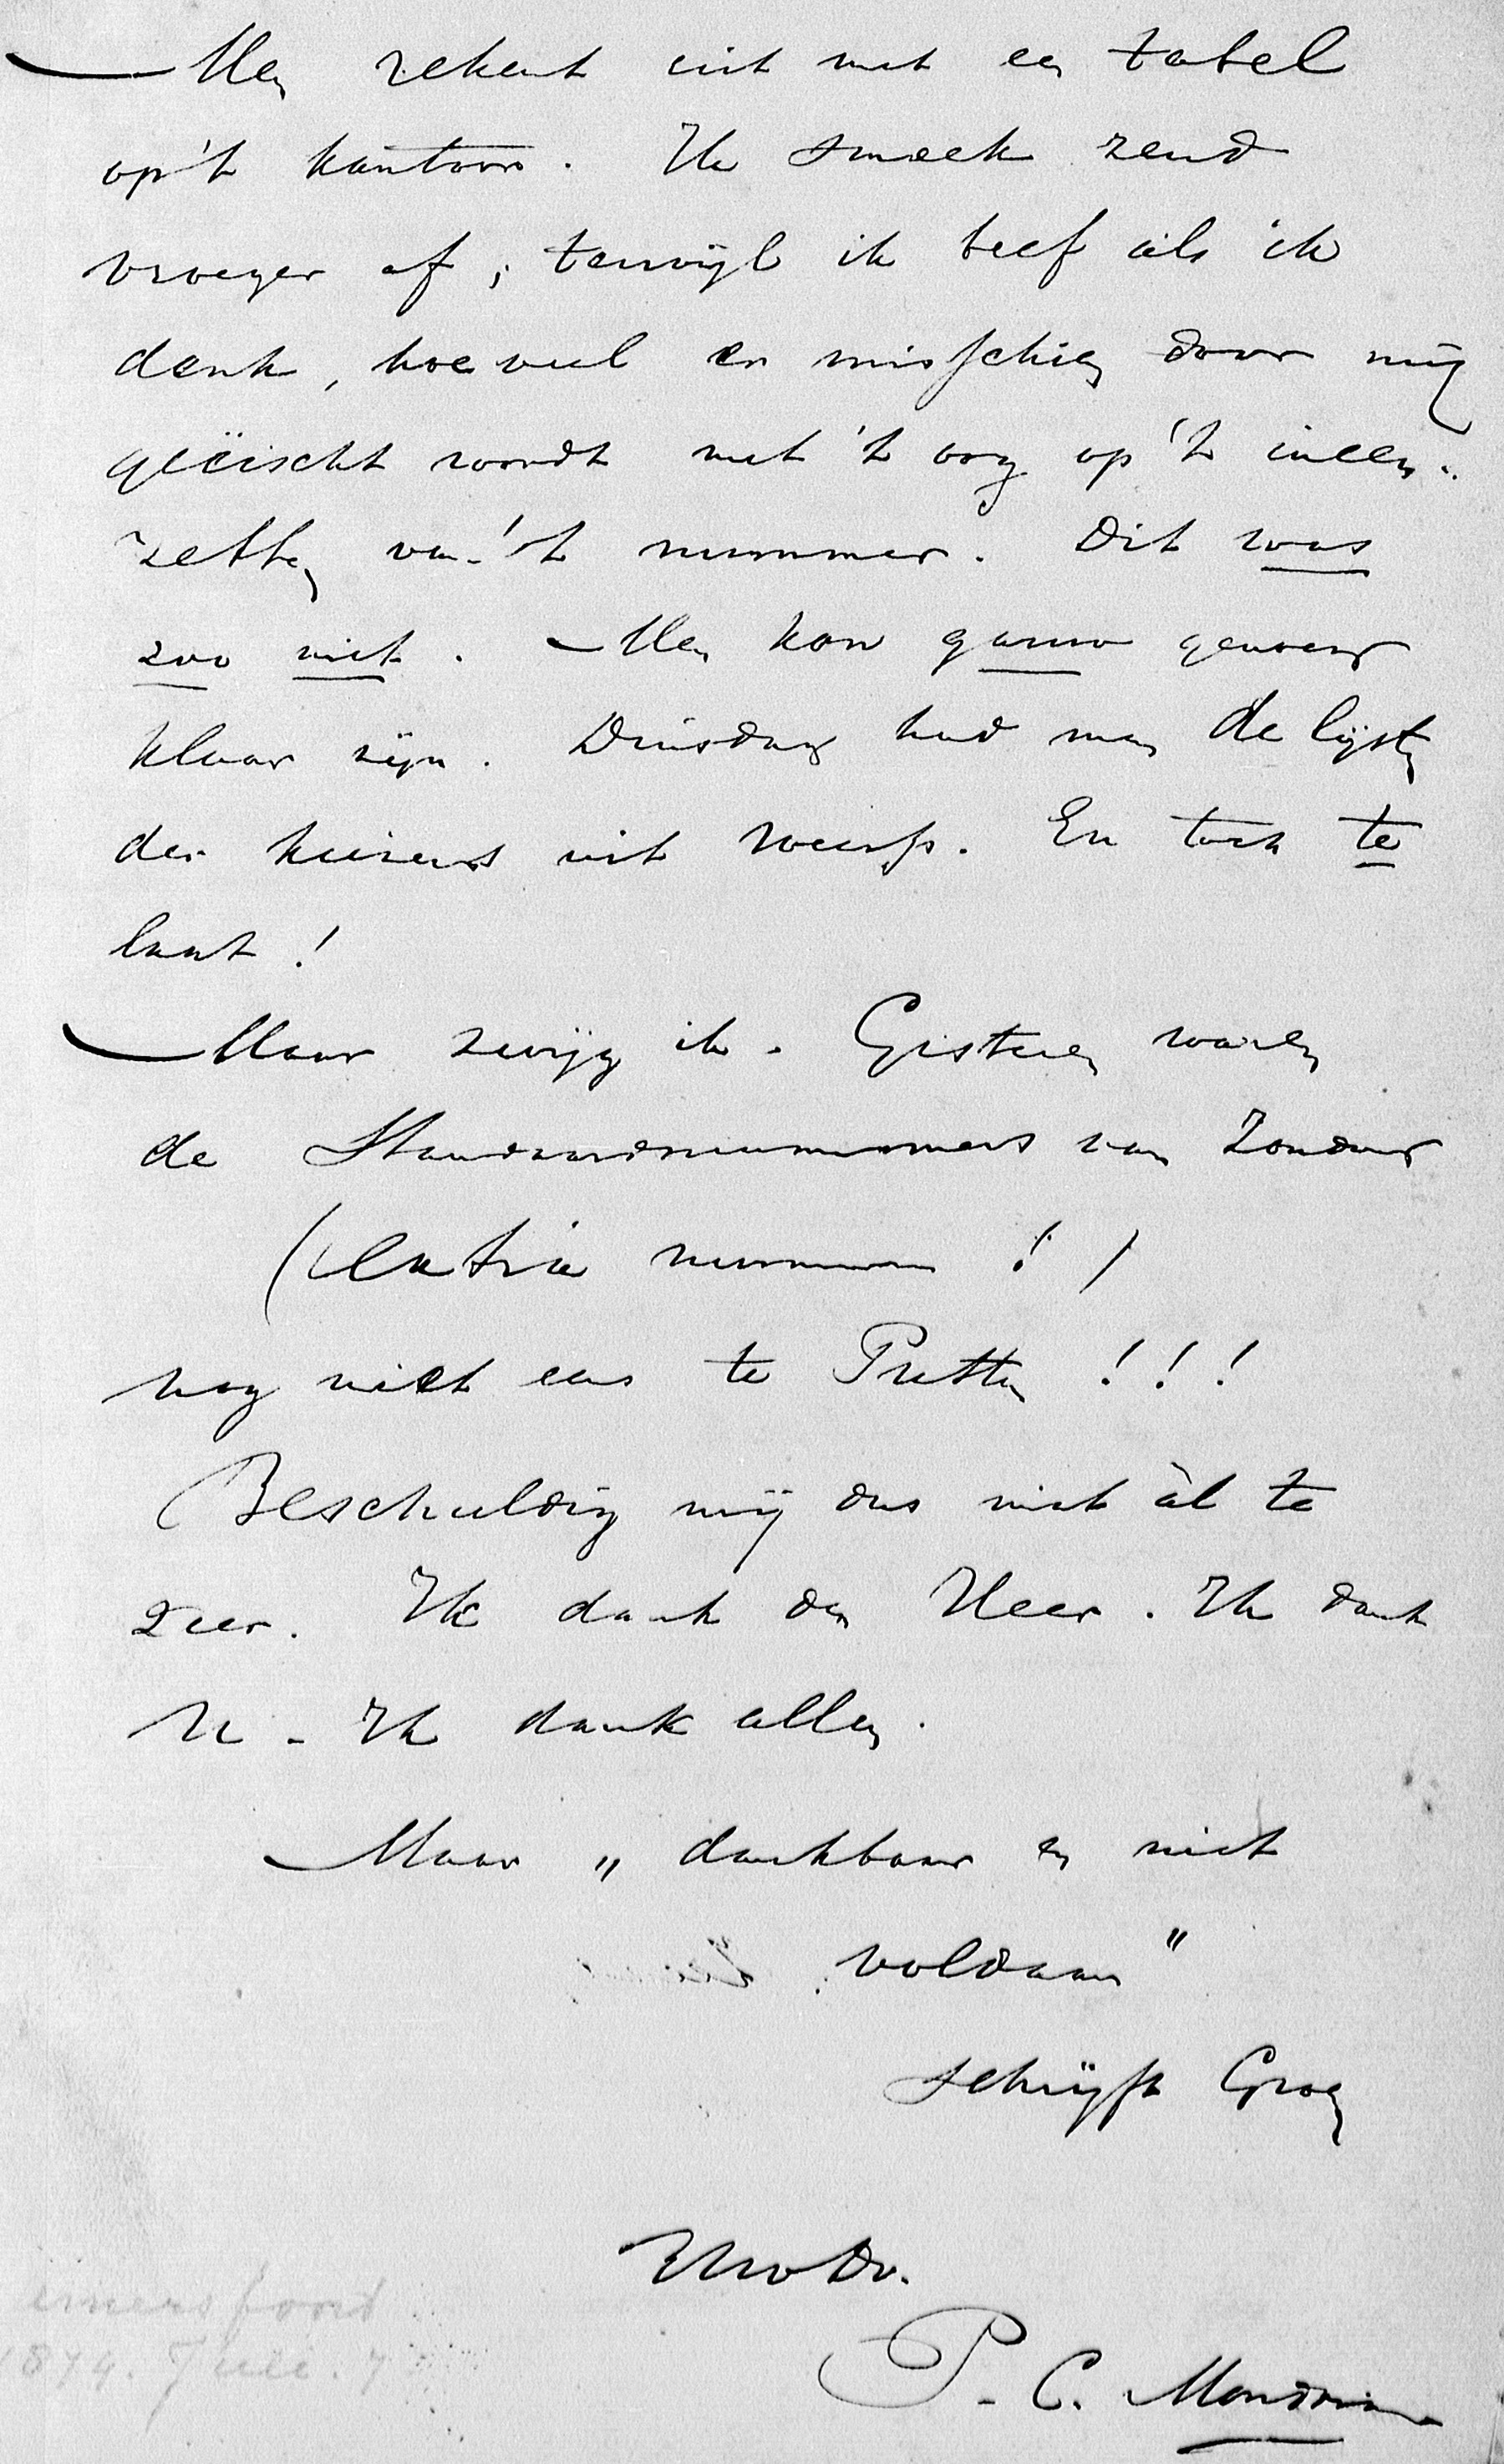 Men rekent uit met een tabel
op 't kantoor. Ik smeek zend
vroeger af, terwijl ik beef als ik
denk, hoeveel er misschien door mij
geëischt wordt met 't oog op 't ineen-
zetten van 't nummer. Dit was
zoo niet. Men kon gauw genoeg
klaar zijn. Dinsdag had men de lijsten
der kiezers uit Weesp. En toch te
laat!
Maar zwijg ik. Gisteren waren
de Standaardnummers van Zondag
(extra nummer!)
nog niet eens te Putten!!!
Beschuldig mij dus niet àl te
zeer. Ik dank den Heer. Ik dank
U - Ik dank allen.
Maar „dankbaar en niet
voldaan"
schrijft Groen
UwDr.
P. C. Mondriaan
amersfoort
1874. Juli. 7